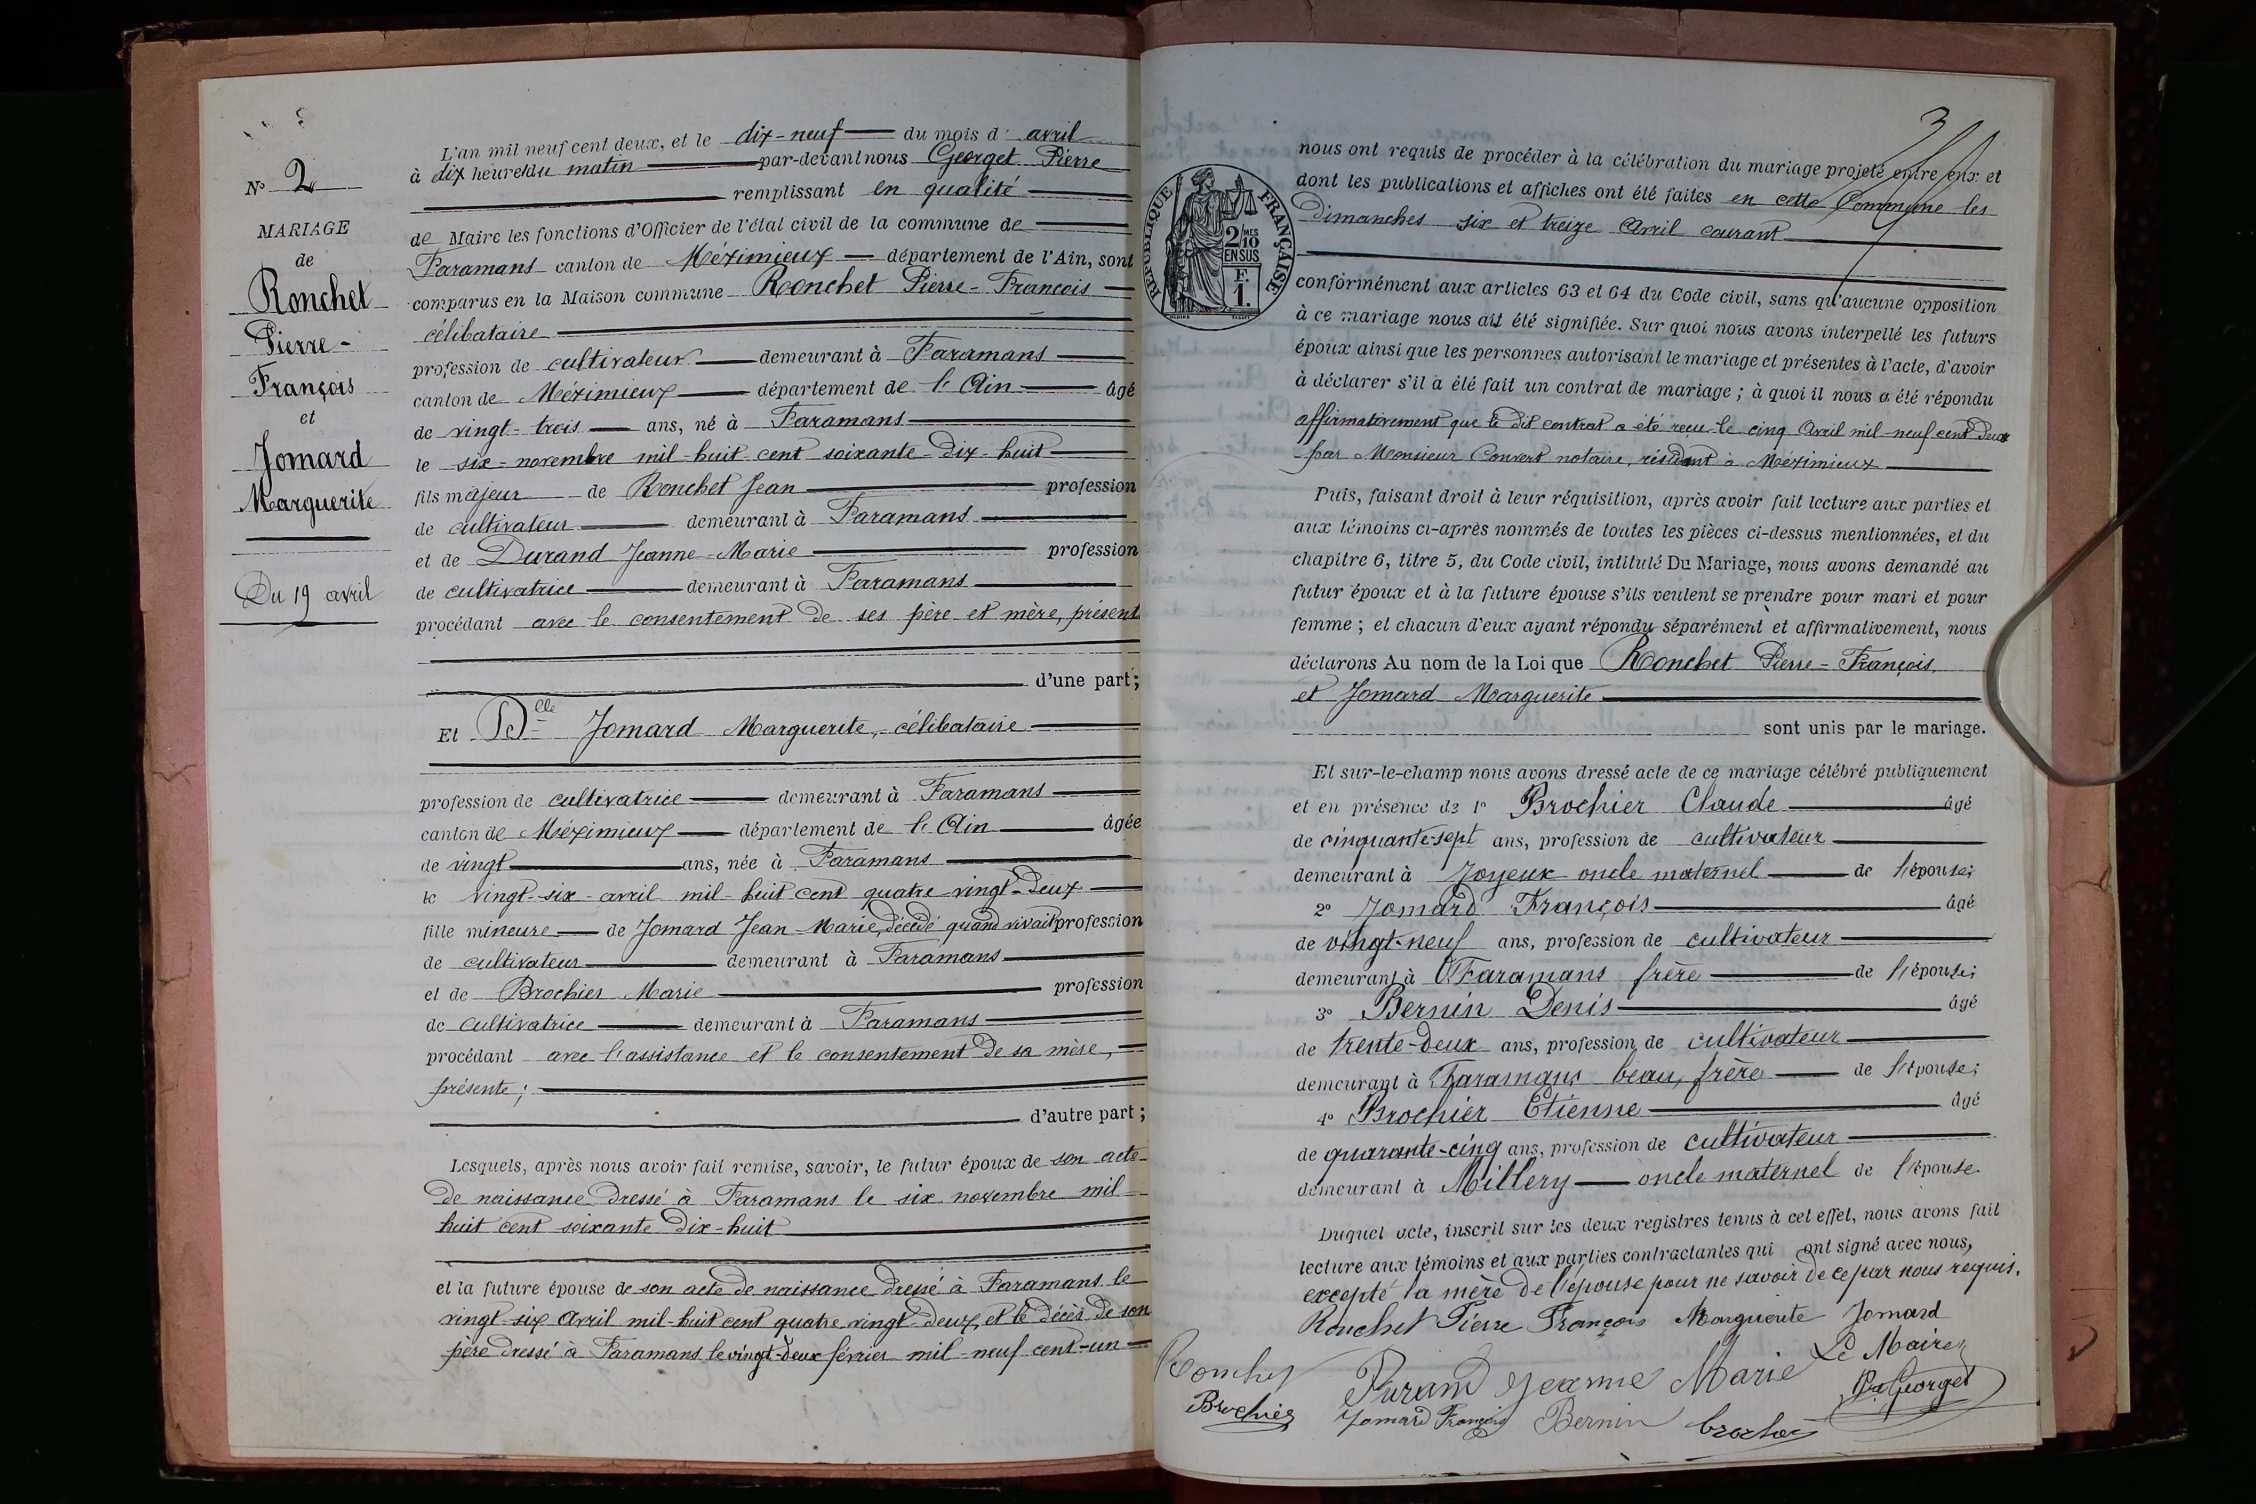 N° 2
MARIAGE
de
Ronchet
Pierre-
François
et
Jomard
Marguerite
Du 19 avril
L'an mil neuf cent deux, et le dix-neuf du mois d' avril
à dix heures du matin par-devant nous Georget Pierre
remplissant en qualité
de Maire les fonctions d'Officier de l'état civil de la commune de
Faramans canton de Méximieux département de l'Ain, sont
comparus en la Maison commune Ronchet Pierre-François
célibataire
profession de cultivateur demeurant à Faramans
canton de Méximieux département de l'Ain âgé
de vingt-trois ans, né à Faramans
le six novembre mil-huit-cent soixante-dix-huit
fils majeur de Ronchet Jean profession
de cultivateur demeurant à Faramans
et de Durand Jeanne-Marie profession
de cultivatrice demeurant à Faramans
procédant avec le consentement de ses père et mère, présent
d'une part;
Et Dlle Jomard Marguerite, célibataire
profession de cultivatrice demeurant à Faramans
canton de Méximieux département de l'Ain âgée
de vingt ans, née à Faramans
le vingt-six avril mil-huit cent quatre-vingt-deux
fille mineure de Jomard Jean-Marie, décédé quand vivait profession
de cultivateur demeurant à Faramans
et de Brochier Marie profession
de cultivatrice demeurant à Faramans
procédant avec l'assistance et le consentement de sa mère,
présente;
d'autre part;
Lesquels, après nous avoir fait remise, savoir, le futur époux de son acte
de naissance dressé à Faramans le six novembre mil
huit cent soixante dix-huit
et la future épouse de son acte de naissance dressé à Faramans le
vingt-six avril mil-huit cent quatre vingt-deux, et le décès de son
père dressé à Faramans le vingt-deux février mil-neuf cent-un
3
RÉPUBLIQUE FRANÇAISE
2/10 MES
EN SUS
F.
1.
nous ont requis de procéder à la célébration du mariage projeté entre eux et
dont les publications et affiches ont été faites en cette Commune les
dimanches six et treize Avril courant
conformément aux articles 63 et 64 du Code civil, sans qu'aucune opposition
à ce mariage nous ait été signifiée. Sur quoi nous avons interpellé les futurs
époux ainsi que les personnes autorisant le mariage et présentes à l'acte, d'avoir
à déclarer s'il a été fait un contrat de mariage; à quoi il nous a été répondu
affirmativement que le dit contrat a été reçu le cinq Avril mil-neuf cent deux
par Monsieur Convert notaire, résidant à Méximieux
Puis, faisant droit à leur réquisition, après avoir fait lecture aux parties et
aux témoins ci-après nommés de toutes les pièces ci-dessus mentionnées, et du
chapitre 6, titre 5, du Code civil, intitulé Du Mariage, nous avons demandé au
futur époux et à la future épouse s'ils veulent se prendre pour mari et pour
femme; et chacun d'eux ayant répondu séparément et affirmativement, nous
déclarons Au nom de la Loi que Ronchet Pierre-François,
et Jomard Marguerite
sont unis par le mariage.
Et sur-le-champ nous avons dressé acte de ce mariage célébré publiquement
et en présence de 1° Brochier Claude âgé
de cinquante-sept ans, profession de cultivateur
demeurant à Joyeux oncle maternel de l'épouse;
2° Jomard François âgé
de vingt-neuf ans, profession de cultivateur
demeurant à Faramans frère de l'épouse;
3° Bernin Denis âgé
de trente-deux ans, profession de cultivateur
demeurant à Faramans beau, frère de l'épouse;
4° Brochier Etienne âgé
de quarante-cinq ans, profession de cultivateur
demeurant à Millery oncle maternel de l'épouse.
Duquel acte, inscrit sur les deux registres tenus à cet effet, nous avons fait
lecture aux témoins et aux parties contractantes qui ont signé avec nous,
excepté la mère de l'épouse pour ne savoir de ce par nous requis.
Ronchet Pierre François Marguerite Jomard
Le Maire
Ronchet Durand Jeanne Marie Georget
Brochier Jomard François Bernin brochier